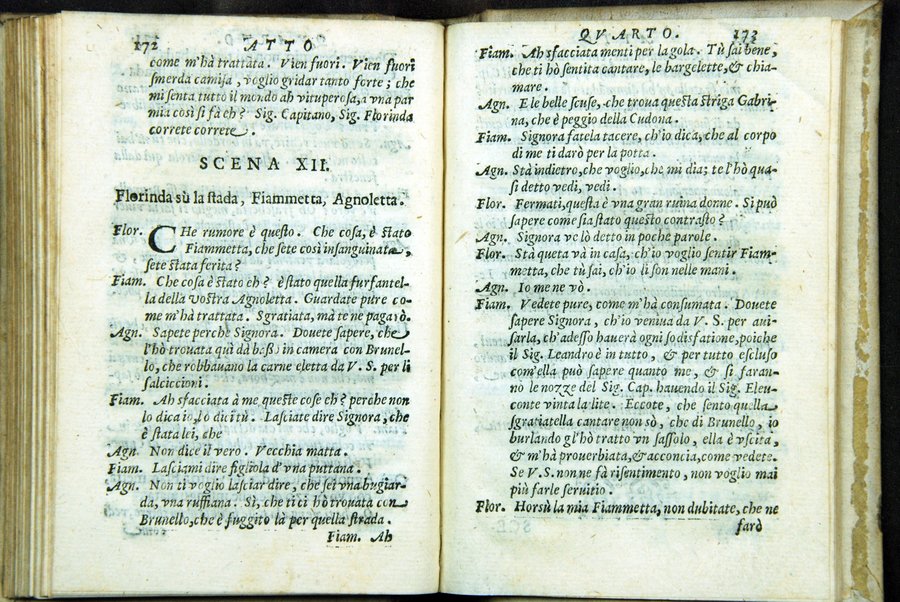 172 ATTO
come m'hà trattata. Vien fuori. Vien fuori
smerda camisa, voglio gridar tanto forte; che
mi senta tutto il mondo ah vituperosa, a vna par
mia così si fà eh? Sig. Capitano, Sig. Florinda
correte correte.
SCENA XII.
Florinda sù la stada, Fiammetta, Agnoletta.
Flor. CHe rumore è questo. Che cosa, è stato
Fiammetta, che sete così insanguinata,
sete stata ferita?
Fiam. Che cosa è stato eh? è stato quella furfantel-
la della vostra Agnoletta. Guardate pure co-
me m'hà trattata. Sgratiata, mà te ne pagarò.
Agn. Sapete perche Signora. Douete sapere, che
l'hò trouata quì dà basso in camera con Brunel-
lo, che robbauano la carne eletta da V.S. per li
salciccioni.
Fiam. Ah sfacciata à me queste cose eh? perche non
lo dica io, lo dici tù. Lasciate dire Signora, che
è stata lei, che
Agn. Non dice il vero. Vecchia matta.
Fiam. Lasciami dire figliola d'vna puttana.
Agn. Non ti voglio lasciar dire, che sei vna bugiar-
da, vna ruffiana. Sì, che ti ci hò trouata con
Brunello, che è fuggito là per quella strada.
Fiam. Ah
QVARTO. 173
Fiam. Ah sfacciata menti per la gola. Tù sai bene,
che ti hò sentita cantare, le bargelette, & chia-
mare.
Agn. E le belle scuse, che troua questa striga Gabri-
na, che è peggio della Cudona.
Fiam. Signora fatela tacere, ch'io dica, che al corpo
di me ti darò per la potta.
Agn. Stà indietro, che voglio, che mi dia; te l'hò qua-
si detto vedi, vedi.
Flor. Fermati, questa è vna gran ruina donne. Si può
sapere come sia stato questo contrasto?
Agn. Signora ve lò detto in poche parole.
Flor. Stà queta và in casa, ch'io voglio sentir Fiam-
metta, che tù sai, ch'io li son nelle mani.
Agn. Io me ne vò.
Fiam. Vedete pure, come m'hà consumata. Douete
sapere Signora, ch'io veniua da V. S. per aui-
sarla, ch'adesso hauerà ogni sodisfatione, poiche
il Sig. Leandro è in tutto, & per tutto escluso
com'ella può sapere quanto me, & si faran-
nò le nozze del Sig. Cap. hauendo il Sig. Eleu-
conte vinta la lite. Eccote, che sento quella
sgratiatella cantare non sò, che di Brunello, io
burlando gl'hò tratto vn sassolo, ella è vscita,
& m'hà prouerbiata, & acconcia, come vedete.
Se V.S. non ne fà risentimento, non voglio mai
più farle seruitio.
Flor. Horsù la mia Fiammetta, non dubitate, che ne
farò